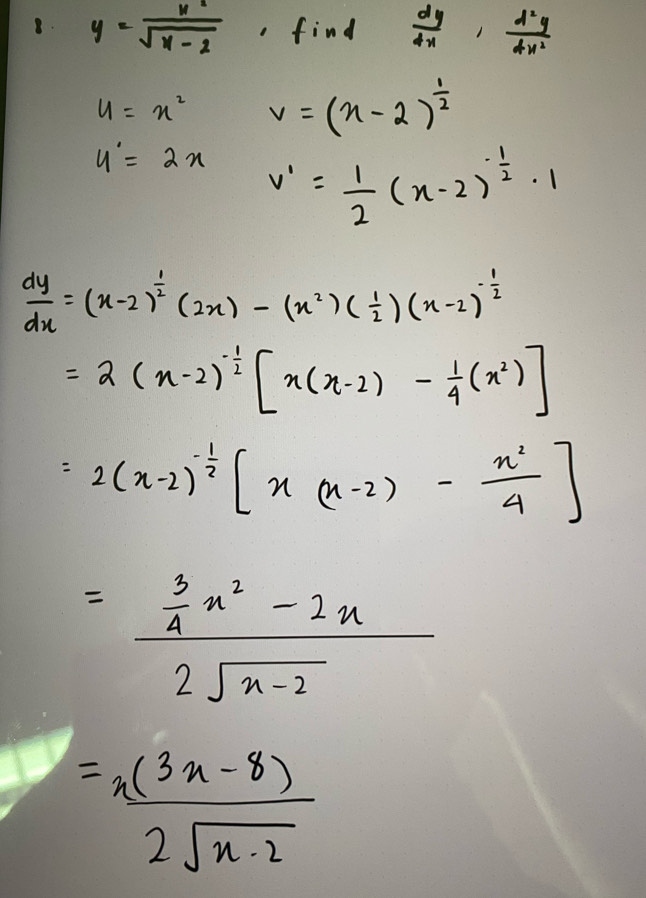 8. y = x²/√(x-2) , find dy/dx , d²y/dx²
u = x² v = (x-2)^(1/2)
u' = 2x v' = 1/2 (x-2)^(-1/2) · 1
dy/dx = (x-2)^(1/2) (2x) - (x²)(1/2)(x-2)^(-1/2)
= 2(x-2)^(-1/2) [x(x-2) - 1/4(x²)]
= 2(x-2)^(-1/2) [x (x-2) - x²/4]
= (3/4 x² - 2x)/(2√(x-2))
= x(3x-8)/(2√(x-2))